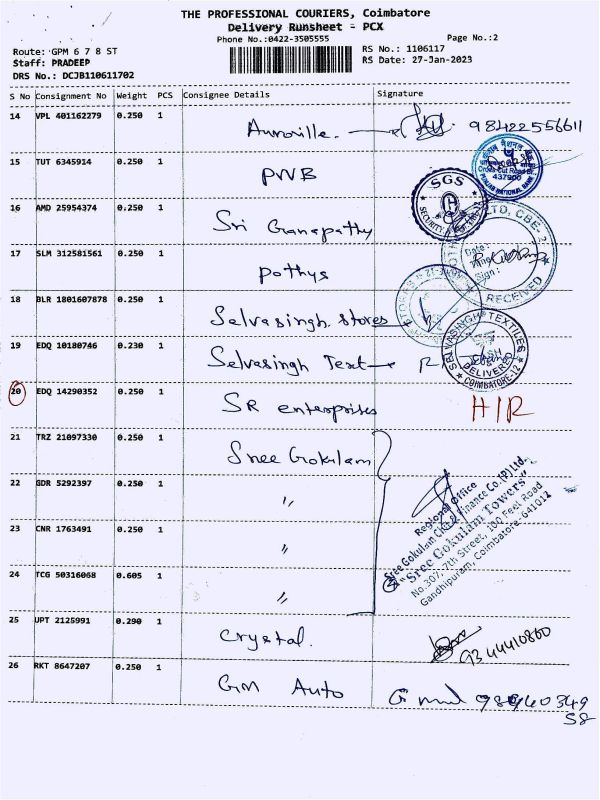 THE PROFESSIONAL COURIERS, Coimbatore
Delivery Runsheet - PCX
Phone No.:0422-3505555
Page No.:2
Route: GPM 6 7 8 ST
RS No.: 1106117
Staff: PRADEEP
RS Date: 27-Jan-2023
DRS No.: DCJB110611702
S No Consignment No Weight PCS Consignee Details Signature
14 VPL 401162279 0.250 1 Auroville. 98422556611
15 TUT 6345914 0.250 1 PNB
437900
PUNJAB NATIONAL BANK
SGS
SECURITY
16 AMD 25954374 0.250 1 Sri Ganapathy
LTD, CBE-2
Date:
Sign:
RECEIVED
17 SLM 312581561 0.250 1 Pothys
18 BLR 1801607878 0.250 1 Selvasingh. Stores
19 EDQ 10180746 0.230 1 Selvasingh Text
SELVASINGH TEXTILES
DELIVERED
COIMBATORE-12
20 EDQ 14290352 0.250 1 SR enterprises H/R
21 TRZ 21097330 0.250 1 Sree Gokulam
22 GDR 5292397 0.250 1 "
23 CNR 1763491 0.250 1 "
24 TCG 50316068 0.605 1 "
Regional Office
Sree Gokulam Chit & Finance Co.(P) Ltd.
"Sree Gokulam Towers"
No.307, 7th Street, 100 Feet Road
Gandhipuram, Coimbatore-641012
25 UPT 2125991 0.290 1 Crystal.
26 RKT 8647207 0.250 1 GM Auto